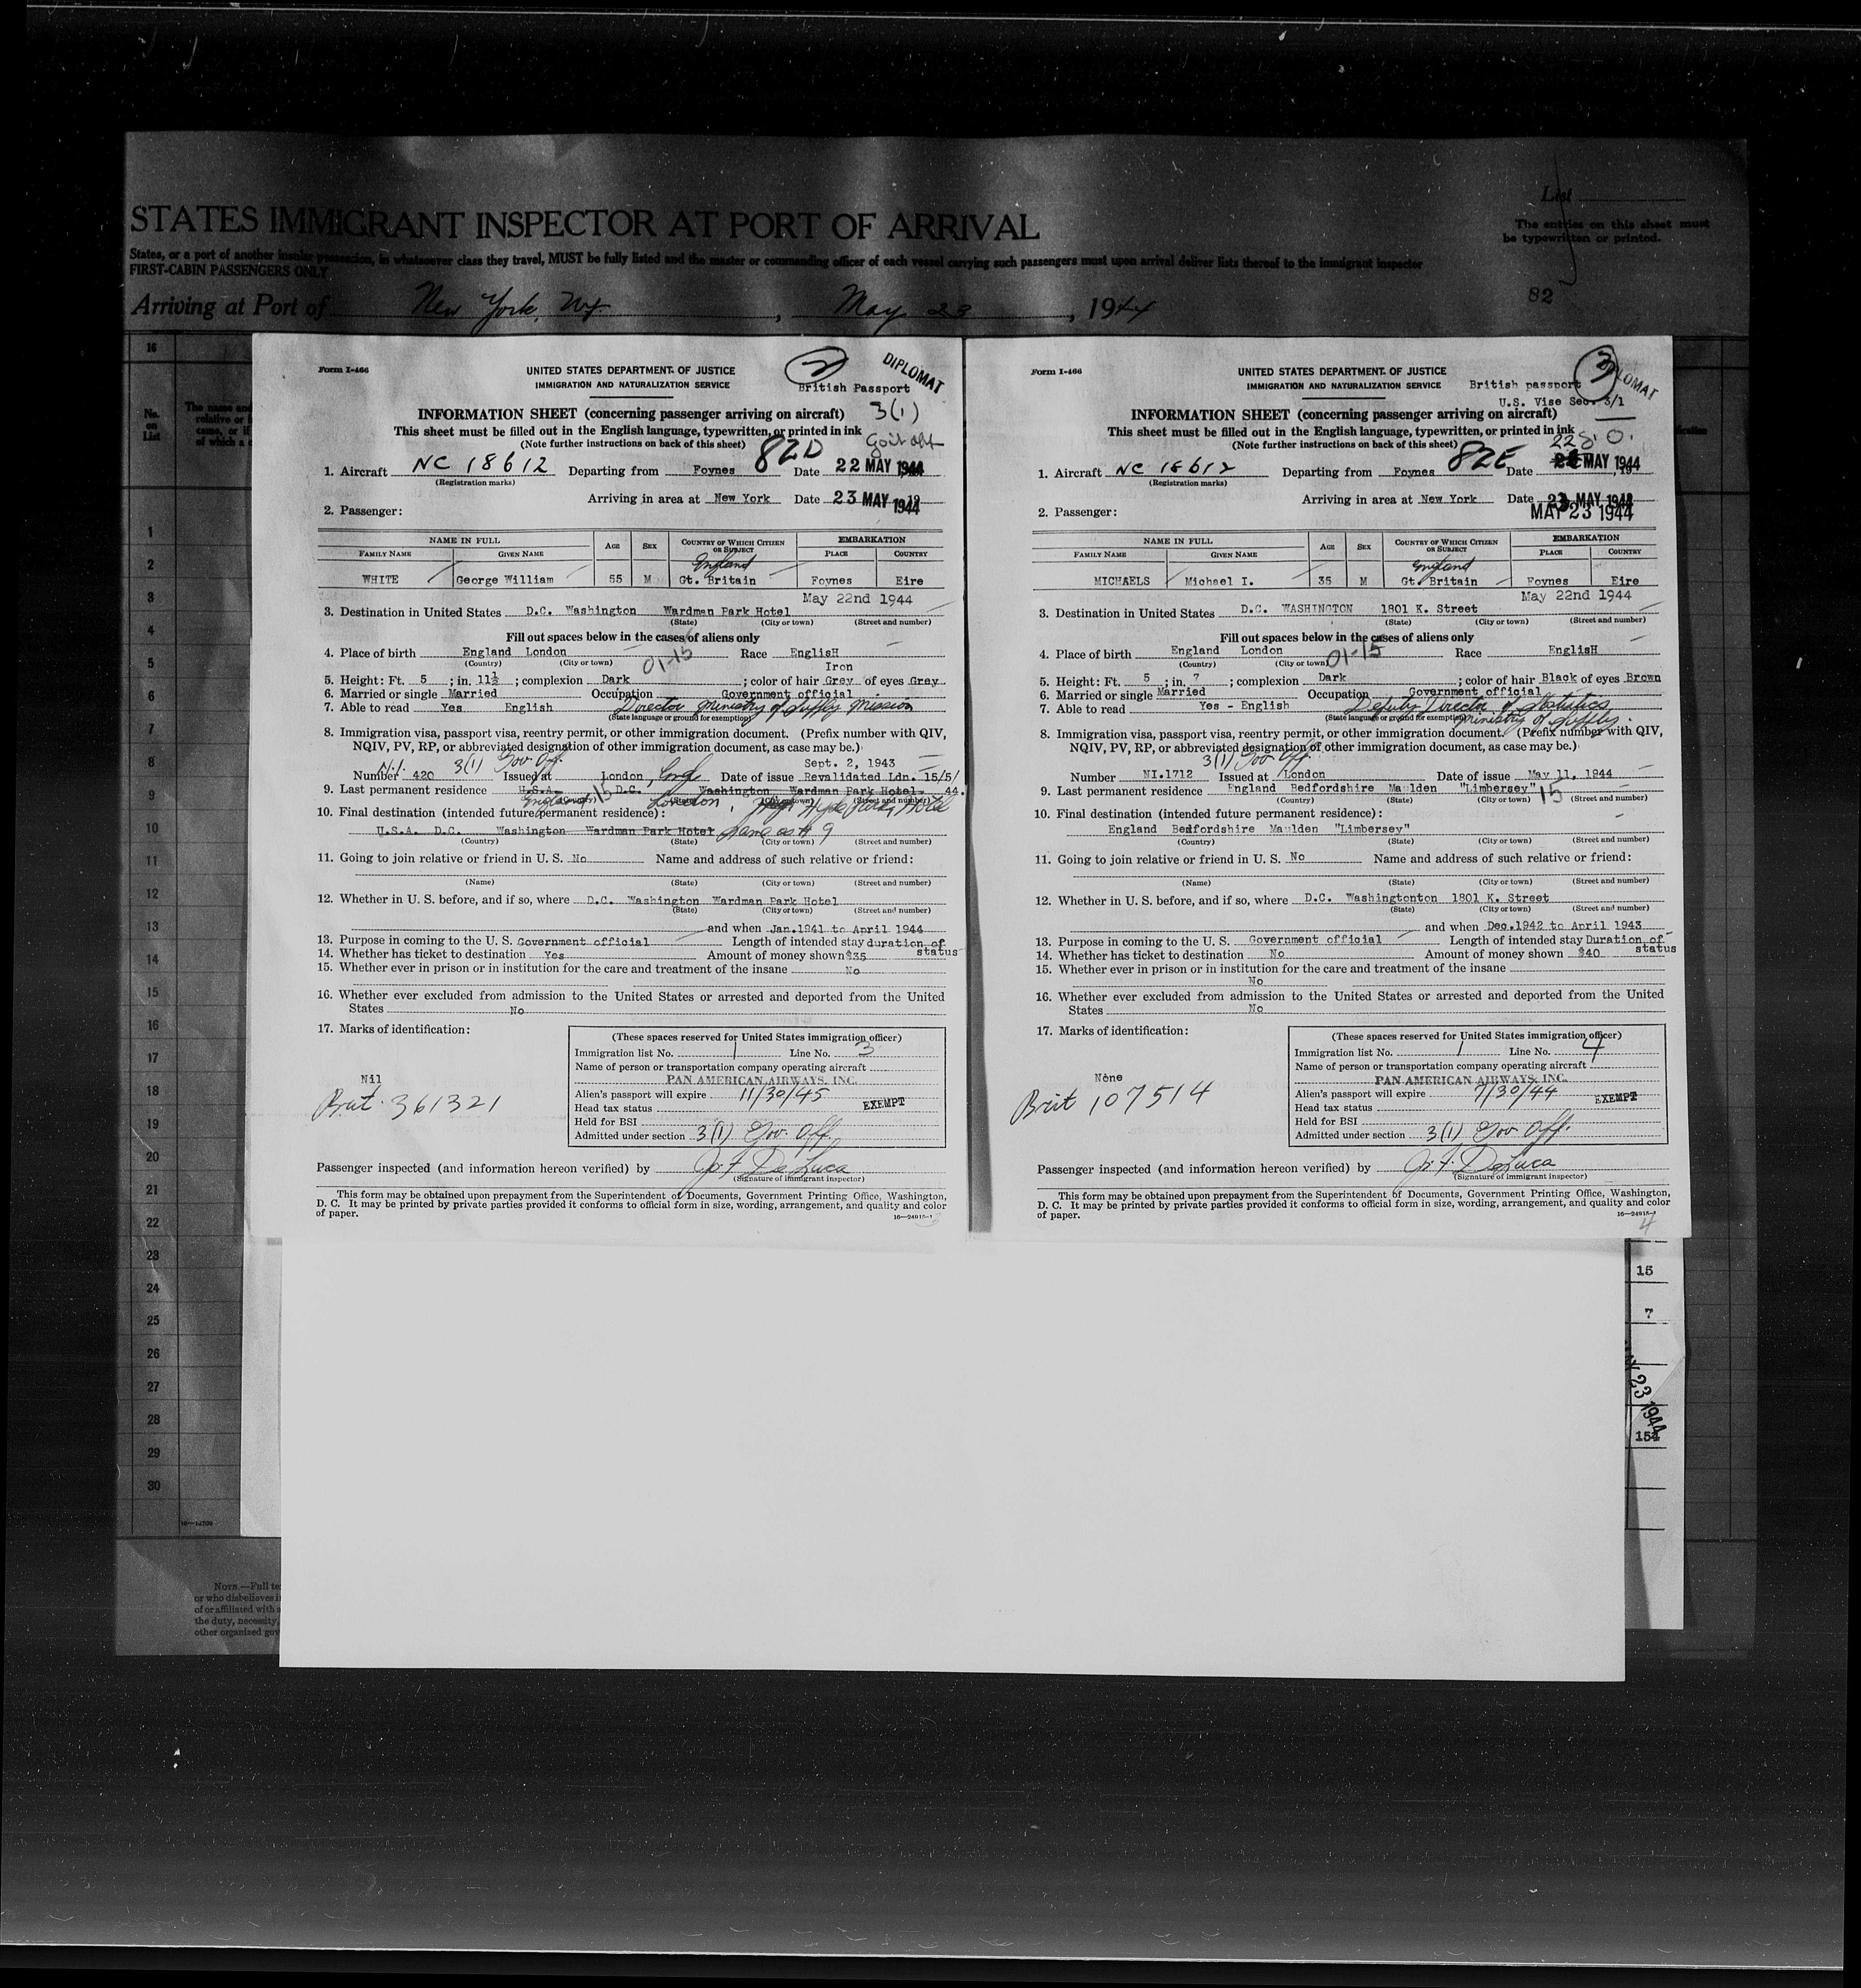 List
STATES IMMIGRANT INSPECTOR AT PORT OF ARRIVAL
The entries on this sheet must
be typewritten or printed.
States, or a port of another insular possession, in whatsoever class they travel, MUST be fully listed and the master or commanding officer of each vessel carrying such passengers must upon arrival deliver lists thereof to the immigrant inspector
FIRST-CABIN PASSENGERS ONLY
82
Arriving at Port of New York, NY. , May 23 , 1944
16
No.
on
List
1
2
3
4
5
6
7
8
9
10
11
12
13
14
15
16
17
18
19
20
21
22
23
24
25
26
27
28
29
30
Form I-466
UNITED STATES DEPARTMENT OF JUSTICE
IMMIGRATION AND NATURALIZATION SERVICE
2
DIPLOMAT
British Passport
INFORMATION SHEET (concerning passenger arriving on aircraft)
3(1)
This sheet must be filled out in the English language, typewritten, or printed in ink
(Note further instructions on back of this sheet)
82D
1. Aircraft NC 18612 Departing from Foynes Date 22 MAY 1944
(Registration marks)
Arriving in area at New York Date 23 MAY 1944
2. Passenger:
NAME IN FULL
AGE SEX COUNTRY OF WHICH CITIZEN OR SUBJECT EMBARKATION
FAMILY NAME GIVEN NAME PLACE COUNTRY
England
WHITE George William 55 M Gt. Britain Foynes Eire
May 22nd 1944
3. Destination in United States D.C. Washington Wardman Park Hotel
(State) (City or town) (Street and number)
Fill out spaces below in the cases of aliens only
4. Place of birth England London Race EnglisH
(Country) (City or town) 01-15
Iron
5. Height: Ft. 5 ; in. 11½ ; complexion Dark ; color of hair Grey of eyes Grey
6. Married or single Married Occupation Government official
7. Able to read Yes English Director Ministry of Supply Mission
(State language or ground for exemption)
8. Immigration visa, passport visa, reentry permit, or other immigration document. (Prefix number with QIV,
NQIV, PV, RP, or abbreviated designation of other immigration document, as case may be.)
N.I. 3(1) Gov. Off. Sept. 2, 1943
Number 420 Issued at London, Date of issue Revalidated Ldn. 15/5/
44.
9. Last permanent residence U.S.A. D.C. Washington Wardman Park Hotel
England 15 London, Hyde Park Hotel
(State) (City or town) (Street and number)
10. Final destination (intended future permanent residence):
U.S.A. D.C. Washington Wardman Park Hotel Same as # 9
(Country) (State) (City or town) (Street and number)
11. Going to join relative or friend in U. S. No Name and address of such relative or friend:
(Name) (State) (City or town) (Street and number)
12. Whether in U. S. before, and if so, where D.C. Washington Wardman Park Hotel
(State) (City or town) (Street and number)
and when Jan.1941 to April 1944
13. Purpose in coming to the U. S. Government official Length of intended stay duration of
status
14. Whether has ticket to destination Yes Amount of money shown $35
15. Whether ever in prison or in institution for the care and treatment of the insane No
16. Whether ever excluded from admission to the United States or arrested and deported from the United
States No
17. Marks of identification:
Nil
Brit. 361321
(These spaces reserved for United States immigration officer)
Immigration list No. 1 Line No. 3
Name of person or transportation company operating aircraft
PAN AMERICAN AIRWAYS, INC.
Alien's passport will expire 11/30/45
Head tax status EXEMPT
Held for BSI
Admitted under section 3(1) Gov. Off.
Passenger inspected (and information hereon verified) by Jo. F. DeLuca
(Signature of immigrant inspector)
This form may be obtained upon prepayment from the Superintendent of Documents, Government Printing Office, Washington,
D. C. It may be printed by private parties provided it conforms to official form in size, wording, arrangement, and quality and color
of paper.
16—24915-1
Form I-466
UNITED STATES DEPARTMENT OF JUSTICE
IMMIGRATION AND NATURALIZATION SERVICE
3
DIPLOMAT
British passport
U.S. Vise Sec. 3/1
INFORMATION SHEET (concerning passenger arriving on aircraft)
This sheet must be filled out in the English language, typewritten, or printed in ink
(Note further instructions on back of this sheet)
82E
22
1. Aircraft NC 18612 Departing from Foynes Date MAY 1944
(Registration marks)
Arriving in area at New York Date 23 MAY 1944
MAY 23 1944
2. Passenger:
NAME IN FULL
AGE SEX COUNTRY OF WHICH CITIZEN OR SUBJECT EMBARKATION
FAMILY NAME GIVEN NAME PLACE COUNTRY
England
MICHAELS Michael I. 35 M Gt. Britain Foynes Eire
May 22nd 1944
3. Destination in United States D.C. WASHINGTON 1801 K. Street
(State) (City or town) (Street and number)
Fill out spaces below in the cases of aliens only
4. Place of birth England London Race EnglisH
(Country) (City or town) 01-15
5. Height: Ft. 5 ; in. 7 ; complexion Dark ; color of hair Black of eyes Brown
6. Married or single Married Occupation Government official
7. Able to read Yes - English Deputy Director of Statistics
(State language or ground for exemption) Ministry of Supply.
8. Immigration visa, passport visa, reentry permit, or other immigration document. (Prefix number with QIV,
NQIV, PV, RP, or abbreviated designation of other immigration document, as case may be.)
3(1) Gov. Off.
Number NI.1712 Issued at London Date of issue May 11, 1944
9. Last permanent residence England Bedfordshire Maulden "Limbersey"
(Country) (State) (City or town) 15 (Street and number)
10. Final destination (intended future permanent residence):
England Bedfordshire Maulden "Limbersey"
(Country) (State) (City or town) (Street and number)
11. Going to join relative or friend in U. S. No Name and address of such relative or friend:
(Name) (State) (City or town) (Street and number)
12. Whether in U. S. before, and if so, where D.C. Washingtonton 1801 K. Street
(State) (City or town) (Street and number)
and when Dec.1942 to April 1943
13. Purpose in coming to the U. S. Government official Length of intended stay Duration of
status
14. Whether has ticket to destination No Amount of money shown $40
15. Whether ever in prison or in institution for the care and treatment of the insane
No
16. Whether ever excluded from admission to the United States or arrested and deported from the United
States No
17. Marks of identification:
None
Brit 107514
(These spaces reserved for United States immigration officer)
Immigration list No. 1 Line No. 4
Name of person or transportation company operating aircraft
PAN AMERICAN AIRWAYS, INC.
Alien's passport will expire 7/30/44
Head tax status EXEMPT
Held for BSI
Admitted under section 3(1) Gov. Off.
Passenger inspected (and information hereon verified) by Jo. F. DeLuca
(Signature of immigrant inspector)
This form may be obtained upon prepayment from the Superintendent of Documents, Government Printing Office, Washington,
D. C. It may be printed by private parties provided it conforms to official form in size, wording, arrangement, and quality and color
of paper.
16—24915-1
4
15
7
MAY 23 1944
154
NOTE.—Full te
or who disbelieves i
of or affiliated with a
the duty, necessity,
other organized gov